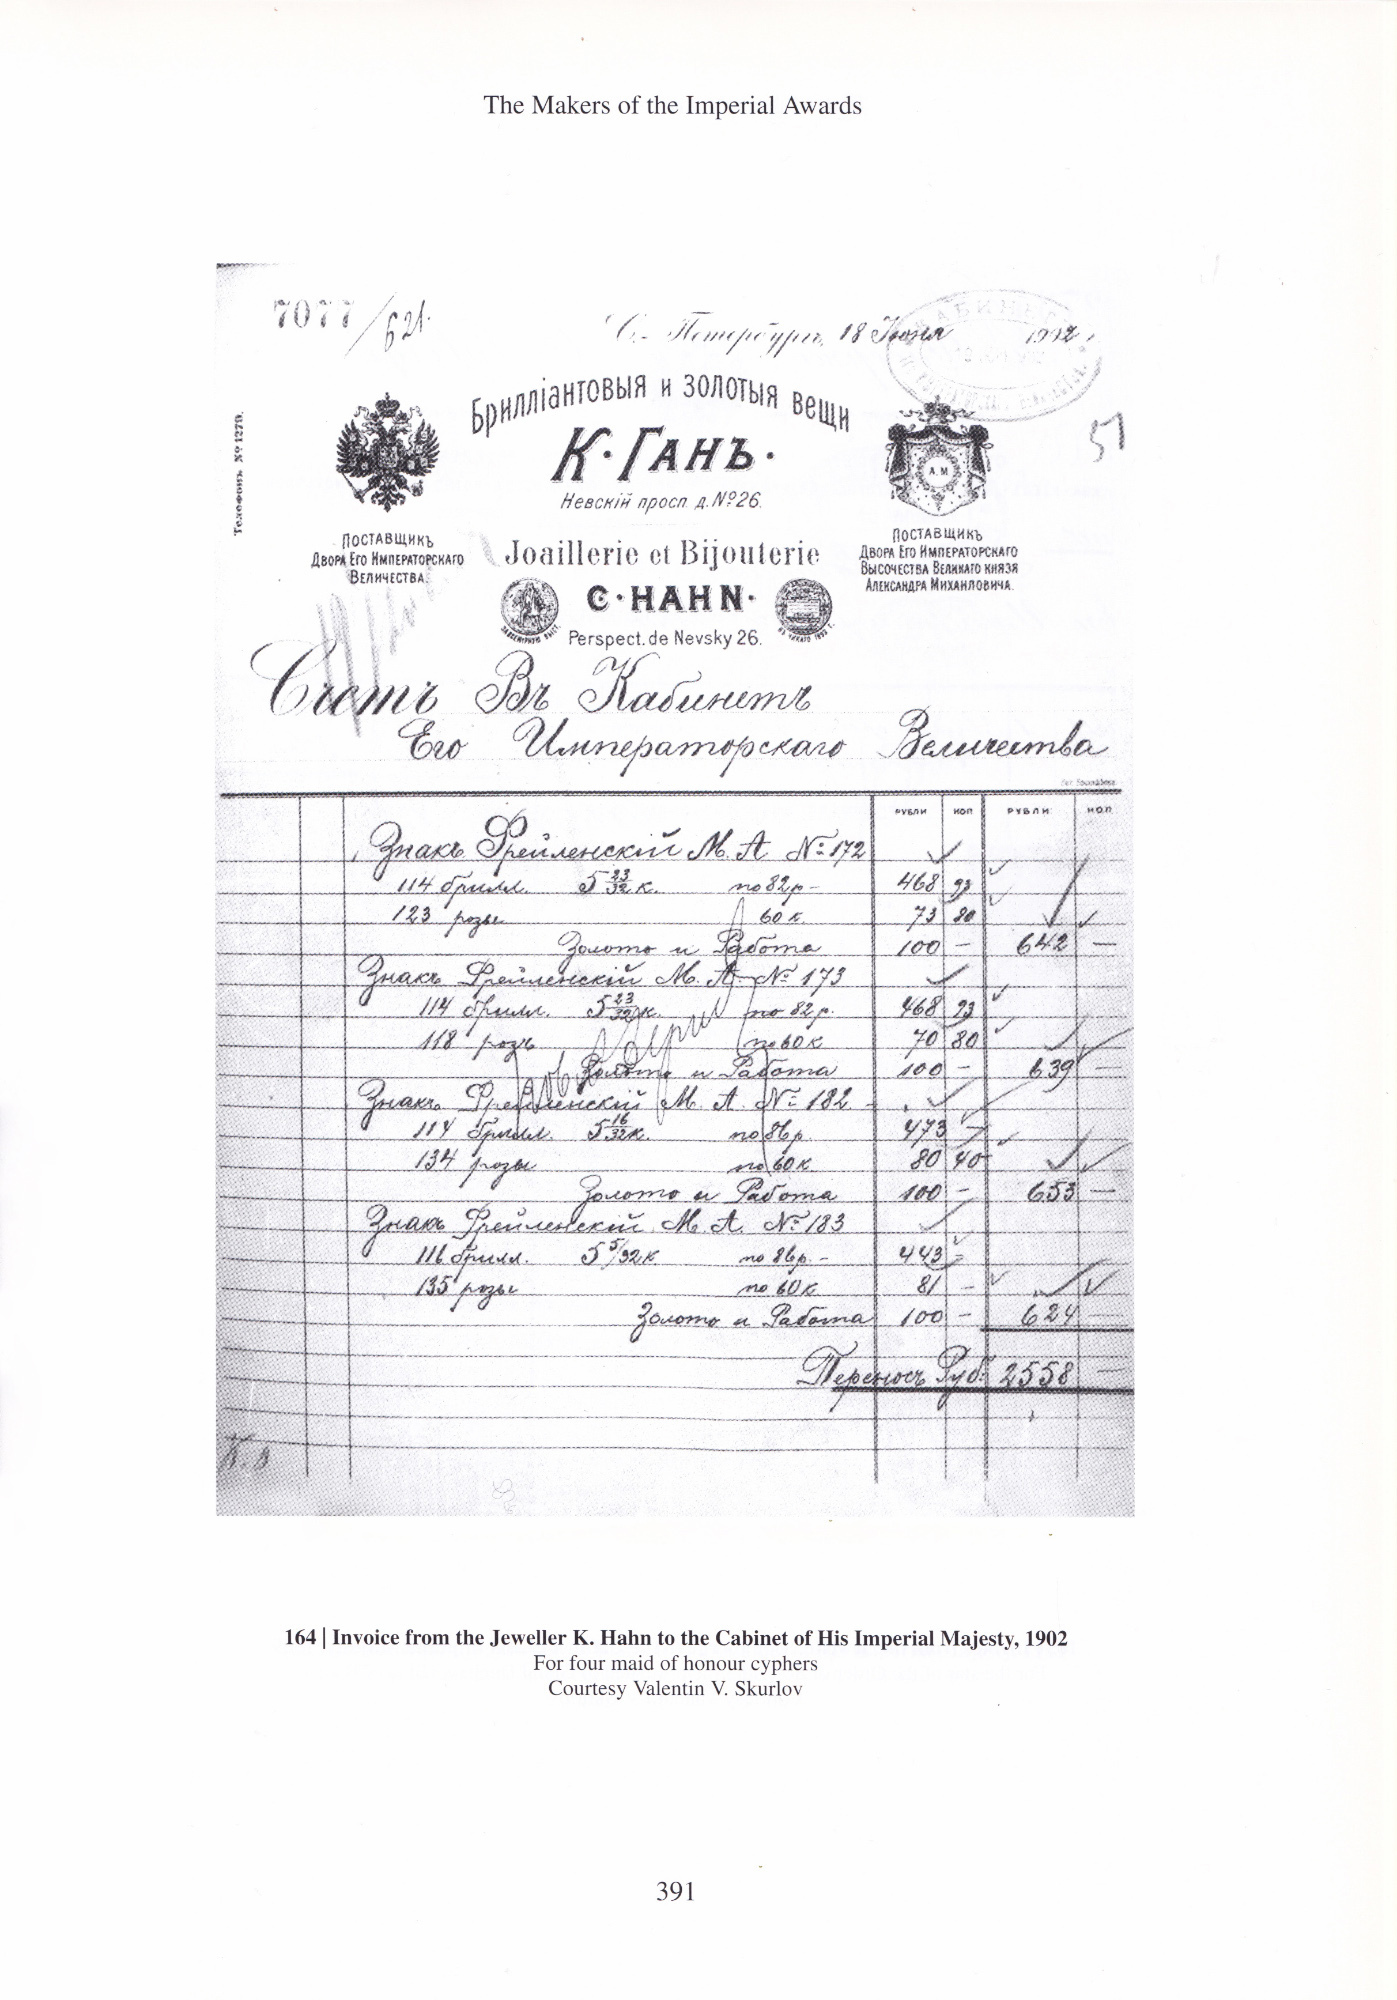 The Makers of the Imperial Awards
7077/621.
С.-Петербургъ, 18 Іюня 1902.
51
Телефонъ № 1270.
Брилліантовыя и золотыя вещи
К. ГАНЪ.
Невскій просп. д. № 26.
ПОСТАВЩИКЪ
ДВОРА ЕГО ИМПЕРАТОРСКАГО
ВЕЛИЧЕСТВА.
А.М
ПОСТАВЩИКЪ
ДВОРА ЕГО ИМПЕРАТОРСКАГО
ВЫСОЧЕСТВА ВЕЛИКАГО КНЯЗЯ
АЛЕКСАНДРА МИХАИЛОВИЧА.
Joaillerie et Bijouterie
C. HAHN.
Perspect. de Nevsky 26.
Счетъ Въ Кабинетъ
Его Императорскаго Величества
РУБЛИ КОП РУБЛИ КОП.
Знакъ Фрейленскій М. А № 172
114 брилл. 5 23/32 к. по 82 р - 468 93
123 розы 60 к. 73 80
Золото и Работа 100 - 642 -
Знакъ Фрейленскій М. А. № 173
114 брилл. 5 23/32 к. по 82 р. 468 93
118 розъ по 60 к 70 80
Золото и Работа 100 - 639 -
Знакъ Фрейленскій М. А. № 182 -
114 брилл. 5 16/32 к. по 86 р. 473 -
134 розы по 60 к. 80 40
Золото и Работа 100 - 653 -
Знакъ Фрейленскій М. А. № 183
116 брилл. 5 5/32 к по 86 р. - 443 -
135 розы по 60 к 81 -
Золото и Работа 100 - 624
Переносъ Руб. 2558 -
К. В
164 | Invoice from the Jeweller K. Hahn to the Cabinet of His Imperial Majesty, 1902
For four maid of honour cyphers
Courtesy Valentin V. Skurlov
391